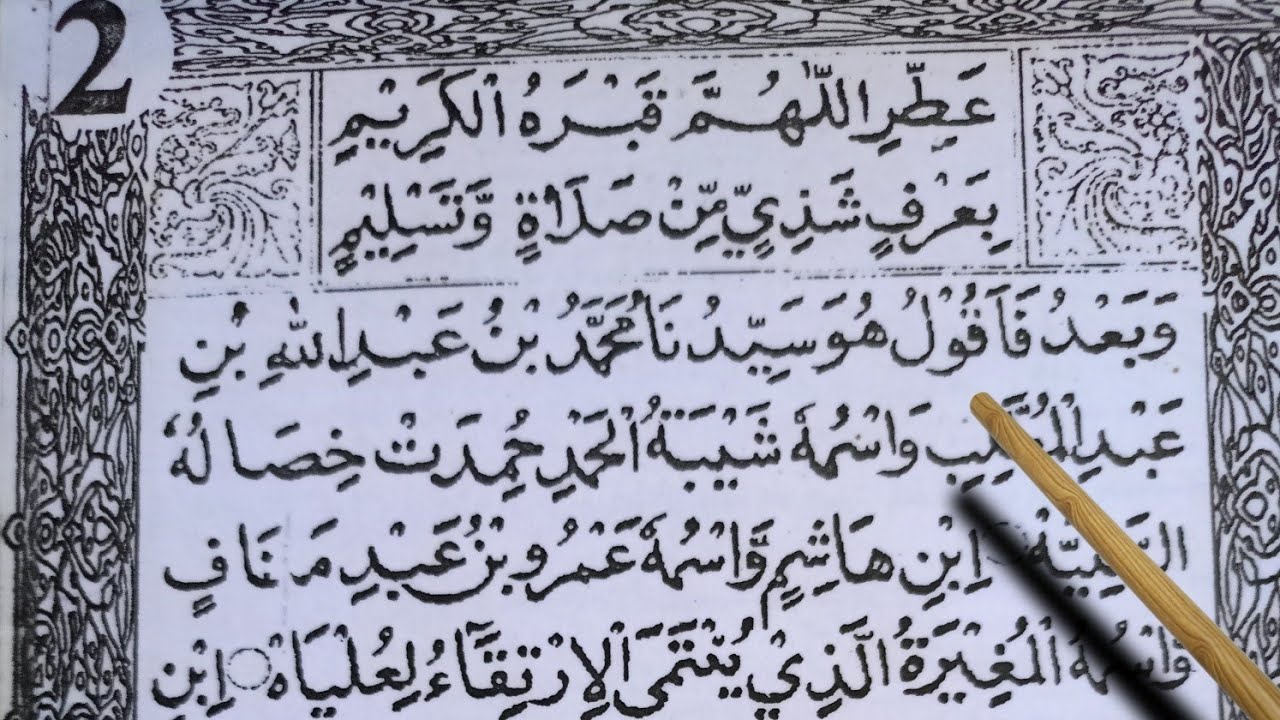 2
عَطِّرِ اللّٰهُمَّ قَبْرَهُ الْكَرِيْمِ
بِعَرْفٍ شَذِيٍّ مِّنْ صَلَاةٍ وَّتَسْلِيْمٍ
وَبَعْدُ فَاَقُوْلُ هُوَ سَيِّدُنَا مُحَمَّدُ بْنُ عَبْدِ اللّٰهِ بْنِ
عَبْدِ الْمُطَّلِبِ وَاسْمُهٗ شَيْبَةُ الْحَمْدِ حُمِدَتْ خِصَالُهُ
السَّنِيَّةْ اِبْنِ هَاشِمٍ وَّاسْمُهٗ عَمْرُو بْنُ عَبْدِ مَنَافٍ
وَّاسْمُهُ الْمُغِيْرَةُ الَّذِيْ يُنْتَمَى الْاِرْتِقَآءُ لِعُلْيَاهْ اِبْنِ